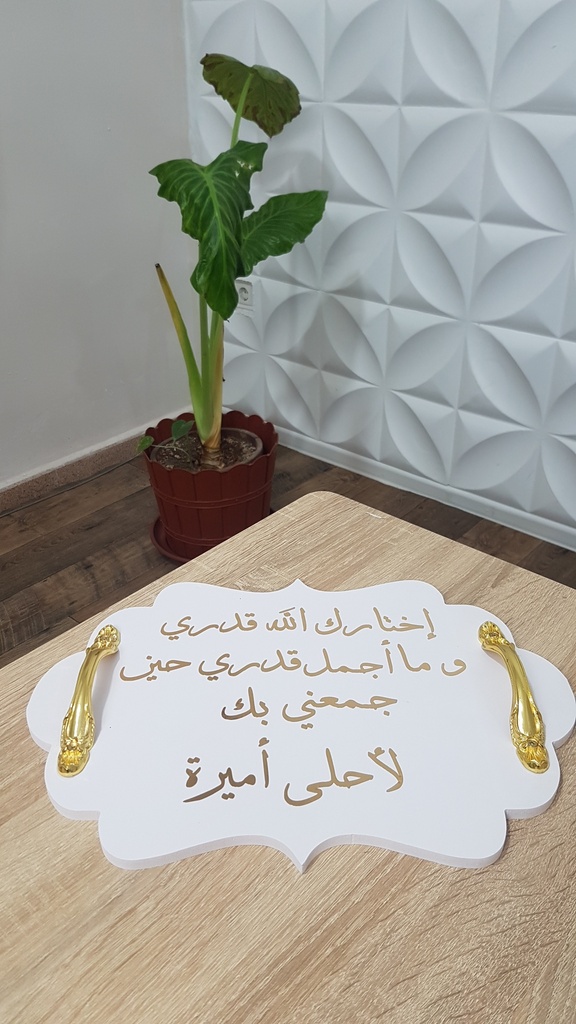 إختارك اللّه قدري
و ما أجمل قدري حين
جمعني بك
لأحلى أميرة